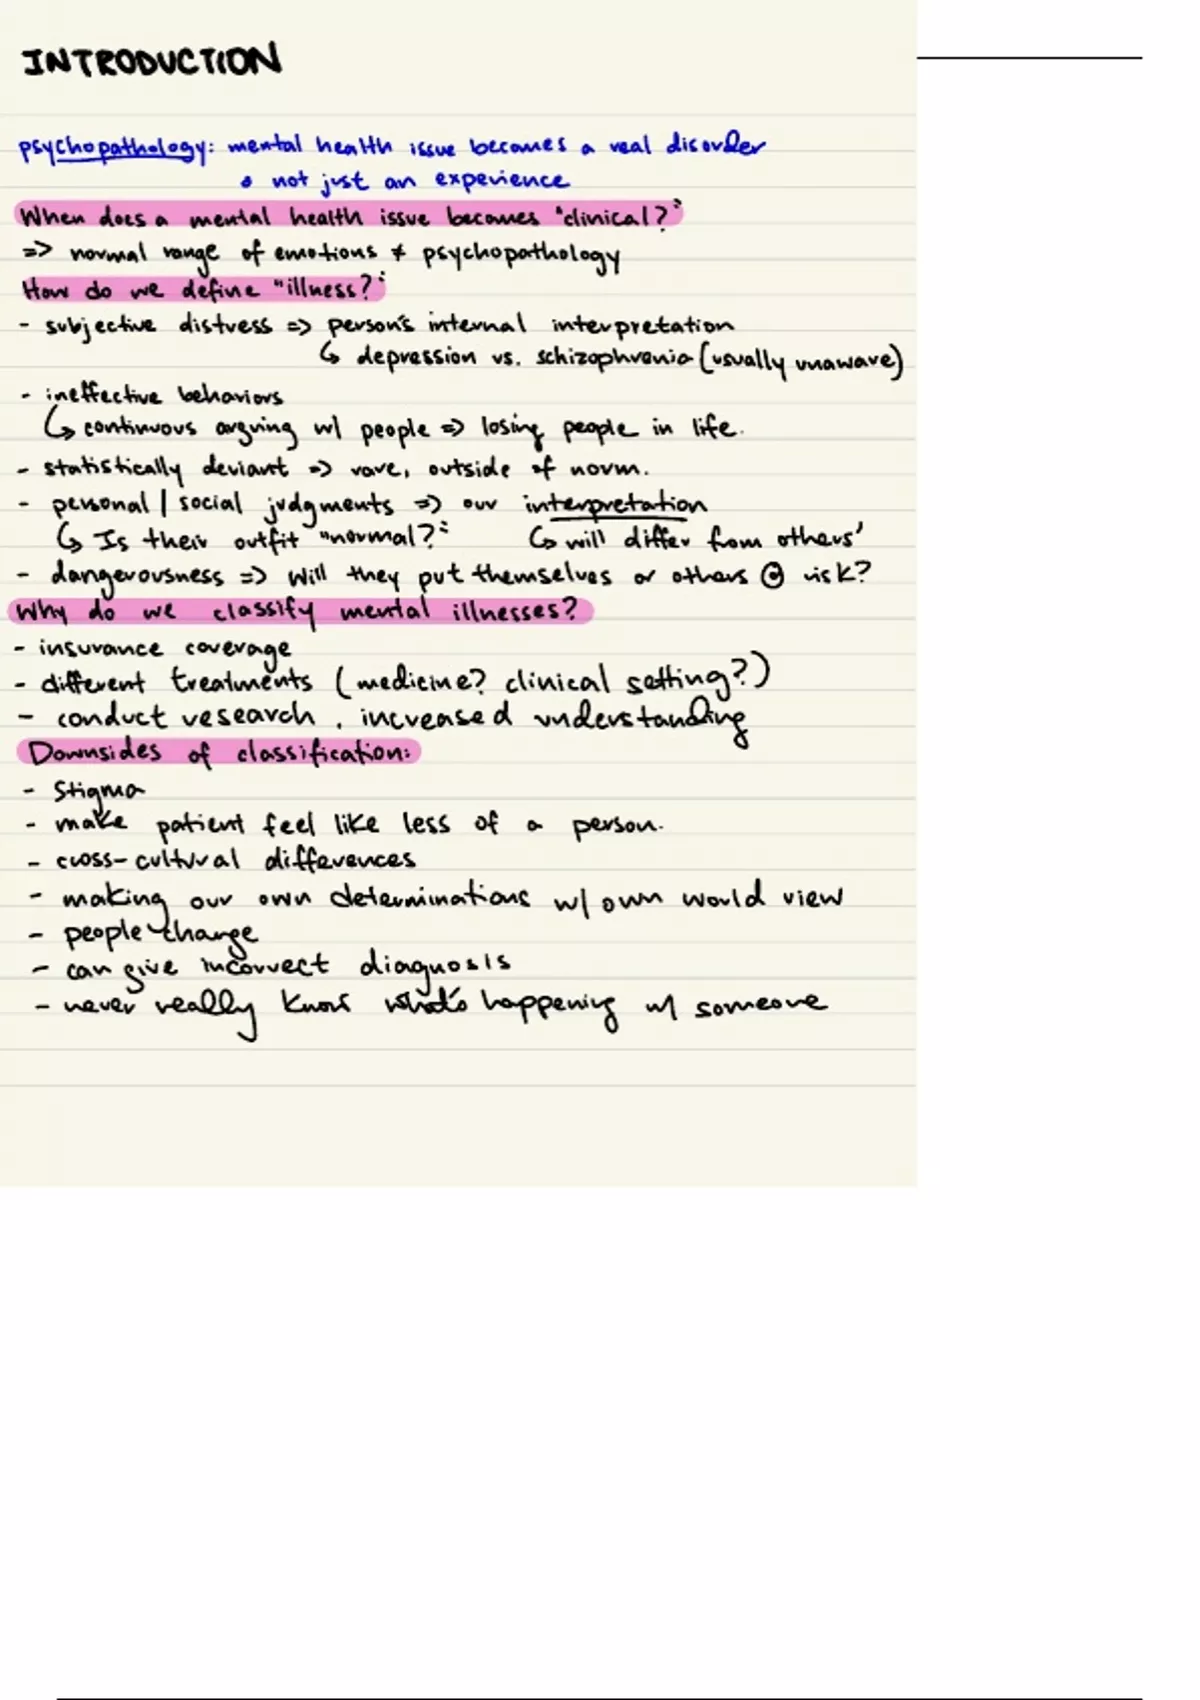 INTRODUCTION
psychopathology: mental health issue becomes a real disorder
• not just an experience
When does a mental health issue becomes "clinical?":
=> normal range of emotions ≠ psychopathology
How do we define "illness?":
- subjective distress => person's internal interpretation
↳ depression vs. schizophrenia (usually unaware)
- ineffective behaviors
↳ continuous arguing w/ people => losing people in life.
- statistically deviant => rare, outside of norm.
- personal / social judgments => our interpretation
↳ Is their outfit "normal?": ↳ will differ from others'
- dangerousness => Will they put themselves or others @ risk?
Why do we classify mental illnesses?
- insurance coverage
- different treatments (medicine? clinical setting?)
- conduct research, increased understanding
Downsides of classification:
- Stigma
- make patient feel like less of a person.
- cross-cultural differences
- making our own determinations w/ own world view
- people change
- can give incorrect diagnosis
- never really know what's happening w/ someone